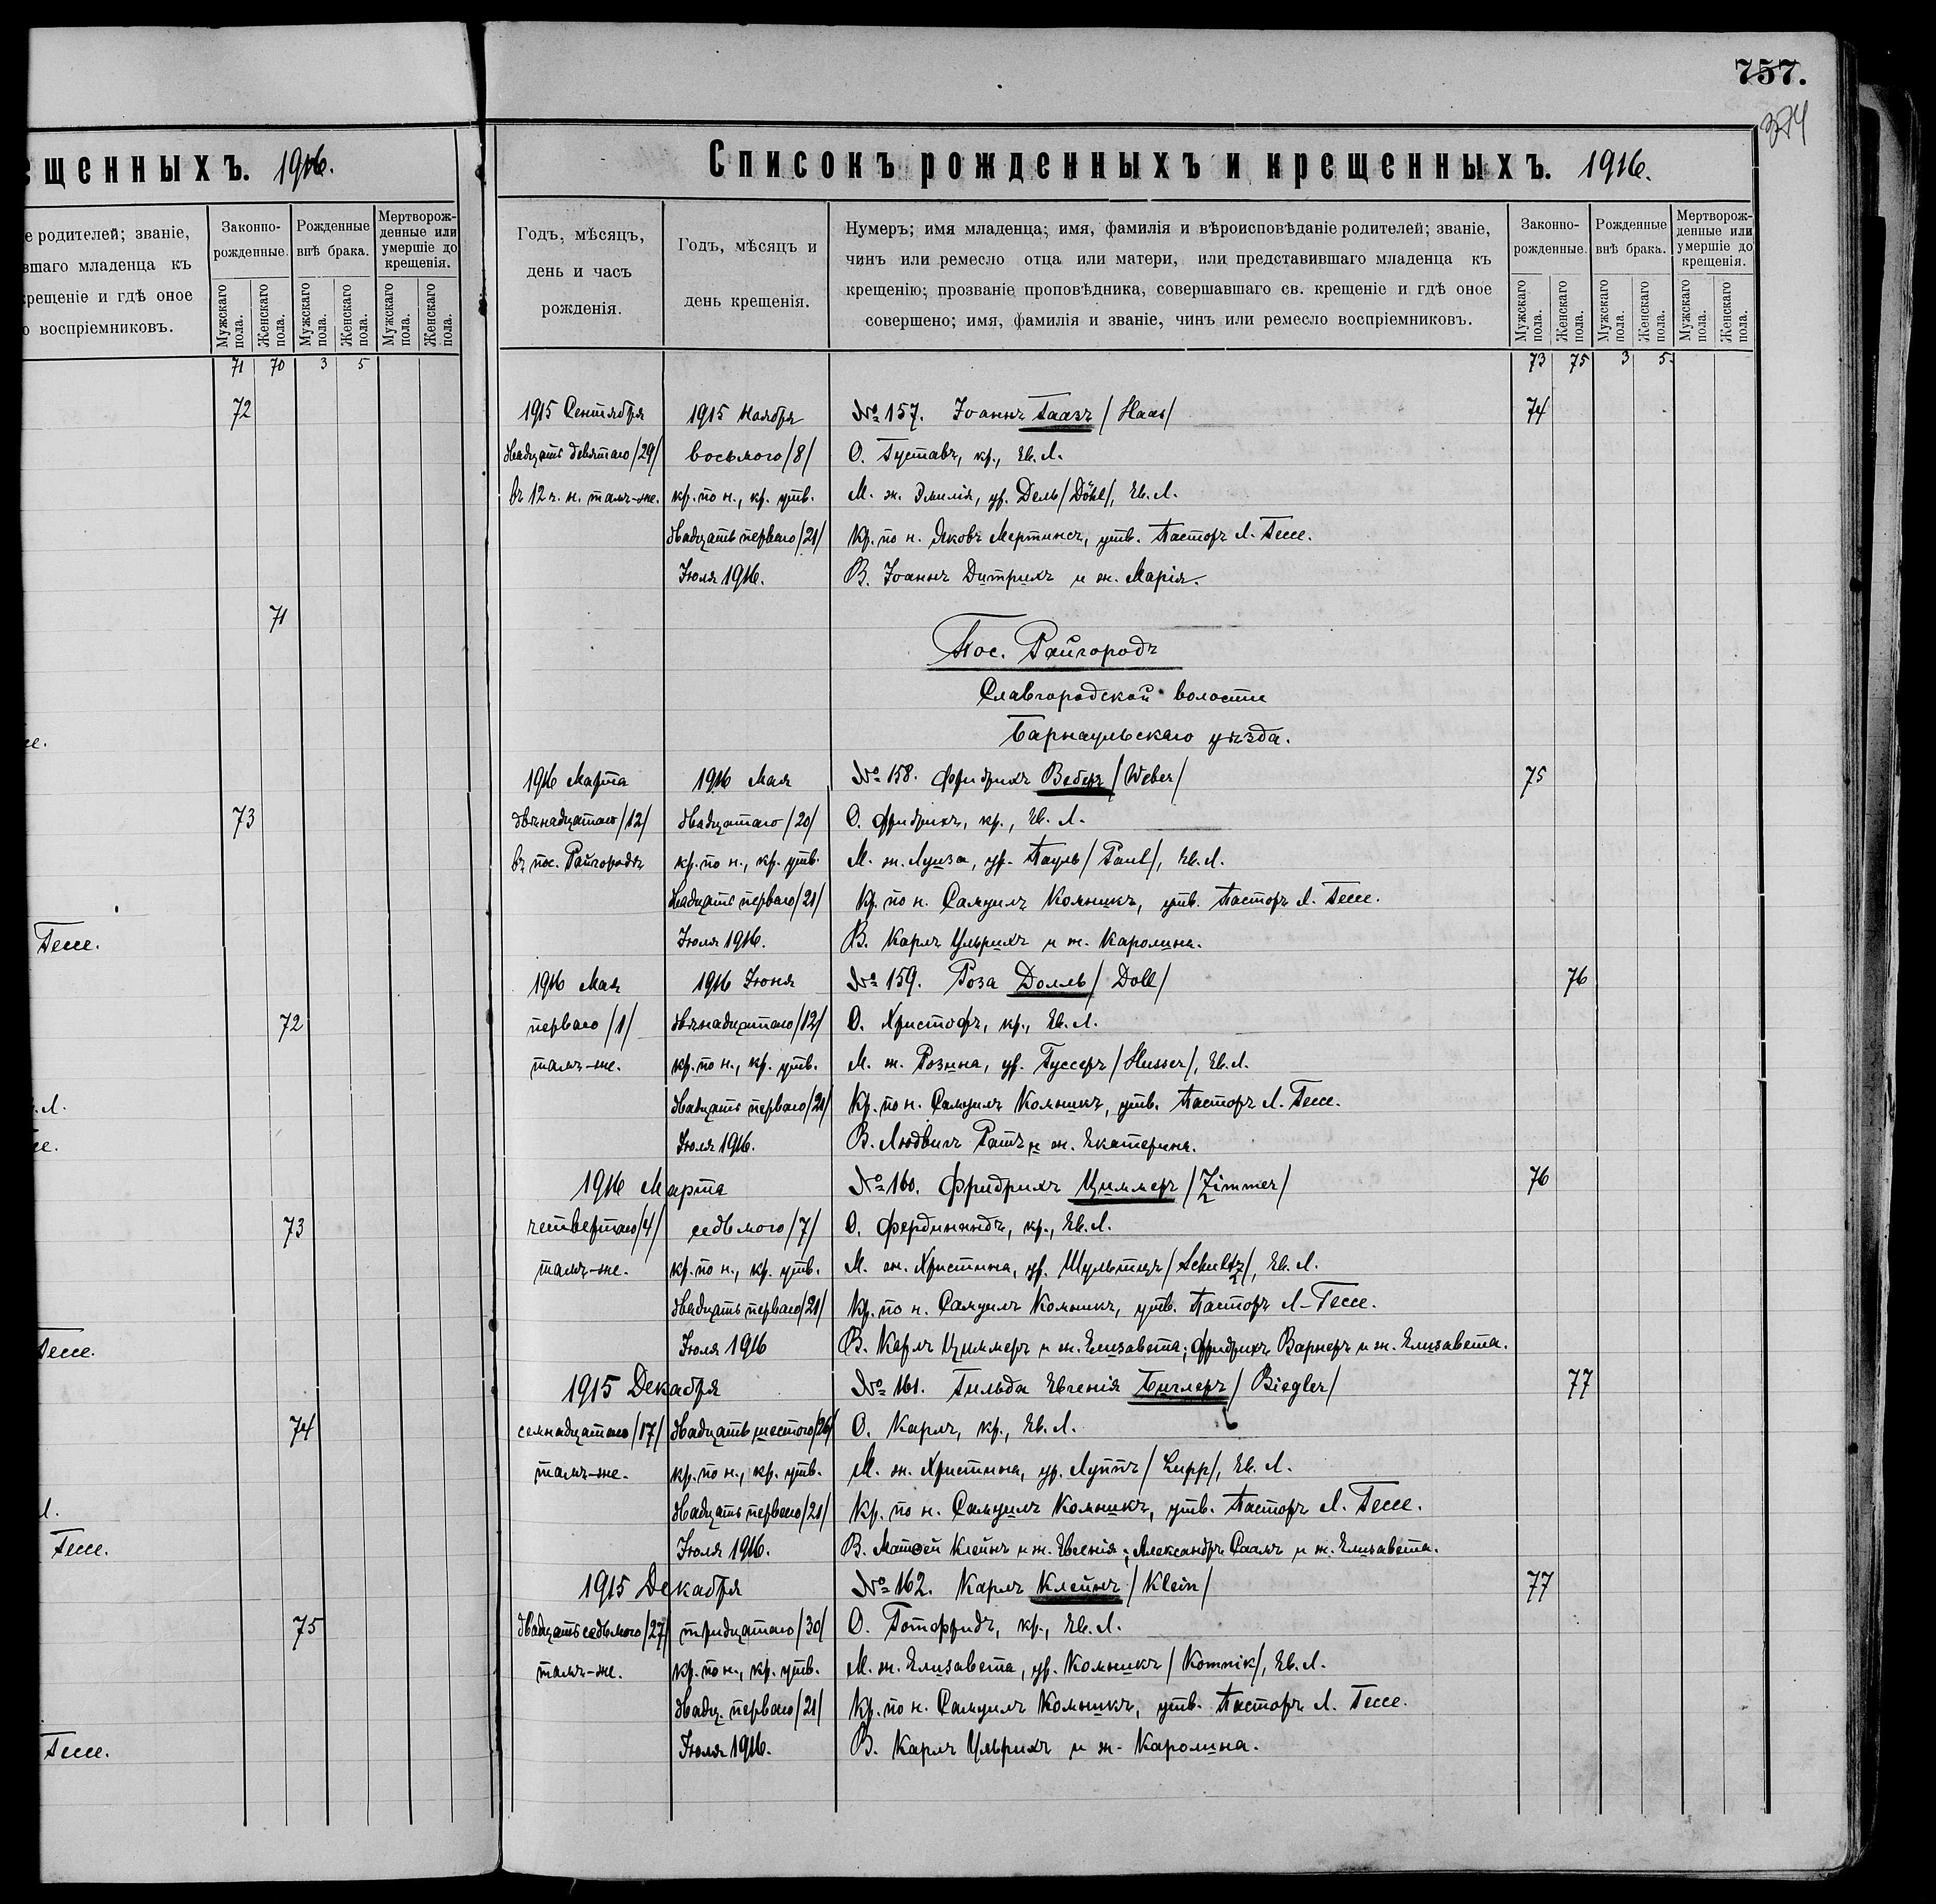 757.
374
ещенныхъ. 1916.
е родителей; званіе,
вшаго младенца къ
крещеніе и гдѣ оное
о воспріемниковъ.
Законно-рожденные.
Рожденные внѣ брака.
Мертворож-денные или умершіе до крещенія.
Мужскаго пола.
Женскаго пола.
Мужскаго пола.
Женскаго пола.
Мужскаго пола.
Женскаго пола.
71 70 3 5
72
71
73
Гессе.
72
73
Гессе.
74
Гессе.
75
Гессе.
Списокъ рожденныхъ и крещенныхъ. 1916.
Годъ, мѣсяцъ,
день и часъ
рожденія.
Годъ, мѣсяцъ и
день крещенія.
Нумеръ; имя младенца; имя, фамилія и вѣроисповѣданіе родителей; званіе,
чинъ или ремесло отца или матери, или представившаго младенца къ
крещенію; прозваніе проповѣдника, совершавшаго св. крещеніе и гдѣ оное
совершено; имя, фамилія и званіе, чинъ или ремесло воспріемниковъ.
Законно-рожденные.
Рожденные внѣ брака.
Мертворож-денные или умершіе до крещенія.
Мужскаго пола.
Женскаго пола.
Мужскаго пола.
Женскаго пола.
Мужскаго пола.
Женскаго пола.
73 75 3 5.
1915 Сентября 1915 Ноября № 157. Іоаннъ Гаазъ /Haas/ 74
двадцать девятаго /29/ восьмого /8/ О. Густавъ, кр., Ев. Л.
въ 12 ч. н. тамъ-же. кр. по н., кр. утв. М. ж. Эмилія, ур. Дель /Döhl/, Ев. Л.
двадцать перваго /21/ Кр. по н. Яковъ Мертинсъ, утв. Пасторъ Л. Гессе.
Іюля 1916. В. Іоаннъ Дитрихъ и ж. Марія.
Пос. Райгородъ
Славгородской волости
Барнаульскаго уѣзда.
1916 Марта 1916 Мая № 158. Фридрихъ Веберъ /Weber/ 75
двѣнадцатаго /12/ двадцатаго /20/ О. Фридрихъ, кр., Ев. Л.
въ пос. Райгородъ кр. по н., кр. утв. М. ж. Луиза, ур. Пауль /Paul/, Ев. Л.
двадцать перваго /21/ Кр. по н. Самуилъ Комникъ, утв. Пасторъ Л. Гессе.
Іюля 1916. В. Карлъ Ульрихъ и ж. Каролина.
1916 Мая 1916 Іюня № 159. Роза Долль /Doll/ 76
перваго /1/ двѣнадцатаго /12/ О. Христофъ, кр., Ев. Л.
тамъ-же. кр. по н., кр. утв. М. ж. Розина, ур. Гуссеръ /Husser/, Ев. Л.
двадцать перваго /21/ Кр. по н. Самуилъ Комникъ, утв. Пасторъ Л. Гессе.
Іюля 1916. В. Людвигъ Ратъ и ж. Екатерина.
1916 Марта № 160. Фридрихъ Циммеръ /Zimmer/ 76
четвертаго /4/ седьмого /7/ О. Фердинандъ, кр., Ев. Л.
тамъ-же. кр. по н., кр. утв. М. ж. Христина, ур. Шультцъ /Schultz/, Ев. Л.
двадцать перваго /21/ Кр. по н. Самуилъ Комникъ, утв. Пасторъ Л. Гессе.
Іюля 1916 В. Карлъ Циммеръ и ж. Елизавета; Фридрихъ Варнеръ и ж. Елизавета.
1915 Декабря № 161. Гильда Евгенія Биглеръ /Biegler/ 77
семнадцатаго /17/ двадцать шестого /26/ О. Карлъ, кр., Ев. Л.
тамъ-же. кр. по н., кр. утв. М. ж. Христина, ур. Луппъ /Lupp/, Ев. Л.
двадцать перваго /21/ Кр. по н. Самуилъ Комникъ, утв. Пасторъ Л. Гессе.
Іюля 1916. В. Матѳей Клейнъ и ж. Евгенія; Александръ Саамъ и ж. Елизавета.
1915 Декабря № 162. Карлъ Клейнъ /Klein/ 77
двадцать седьмого /27/ тридцатаго /30/ О. Готфридъ, кр., Ев. Л.
тамъ-же. кр. по н., кр. утв. М. ж. Елизавета, ур. Комникъ /Komnik/, Ев. Л.
двадц. перваго /21/ Кр. по н. Самуилъ Комникъ, утв. Пасторъ Л. Гессе.
Іюля 1916. В. Карлъ Ульрихъ и ж. Каролина.